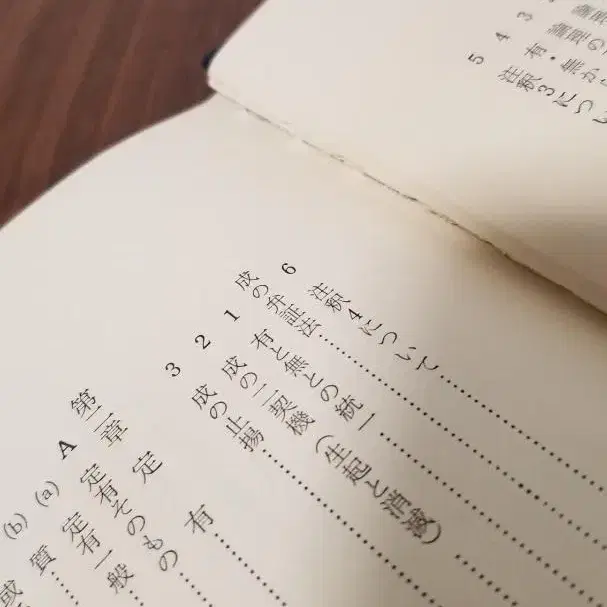 3 論理の
4 有・無か
5 注釈3につい
6 注釈4について
成の弁証法
1 有と無との統一
2 成の二契機（生起と消滅）
3 成の止揚
第二章 定有
A 定有そのもの
(a) 定有一般
(b) 質
或